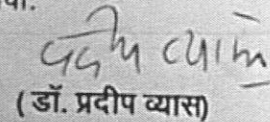 था.
प्रदीप व्यास
(डॉ. प्रदीप व्यास)